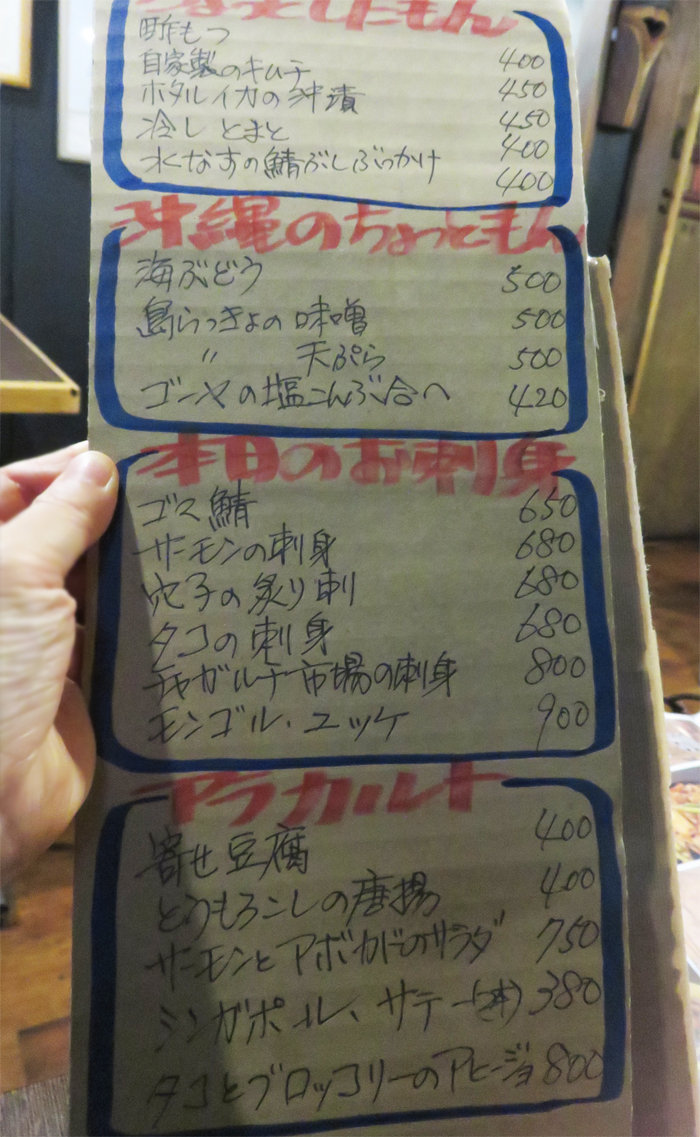 ちょっとしたもん
酢もつ 400
自家製のキムチ 450
ホタルイカの沖漬 450
冷しとまと 400
水なすの鯖ぶしぶっかけ 400
沖縄のちょっともん
海ぶどう 500
島らっきょの味噌 500
〃 天ぷら 500
ゴーヤの塩こんぶ合へ 420
本日のお刺身
ゴマ鯖 650
サーモンの刺身 680
穴子の炙り刺 680
タコの刺身 680
市場の刺身 800
モンゴル、ユッケ 900
アラカルト
寄せ豆腐 400
とうもろこしの唐揚 400
サーモンとアボカドのサラダ 750
シンガポール、サテー(2本) 380
タコとブロッコリーのアヒージョ 800